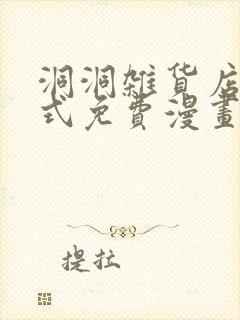 洞洞雜貨店
式免費漫畫
提拉